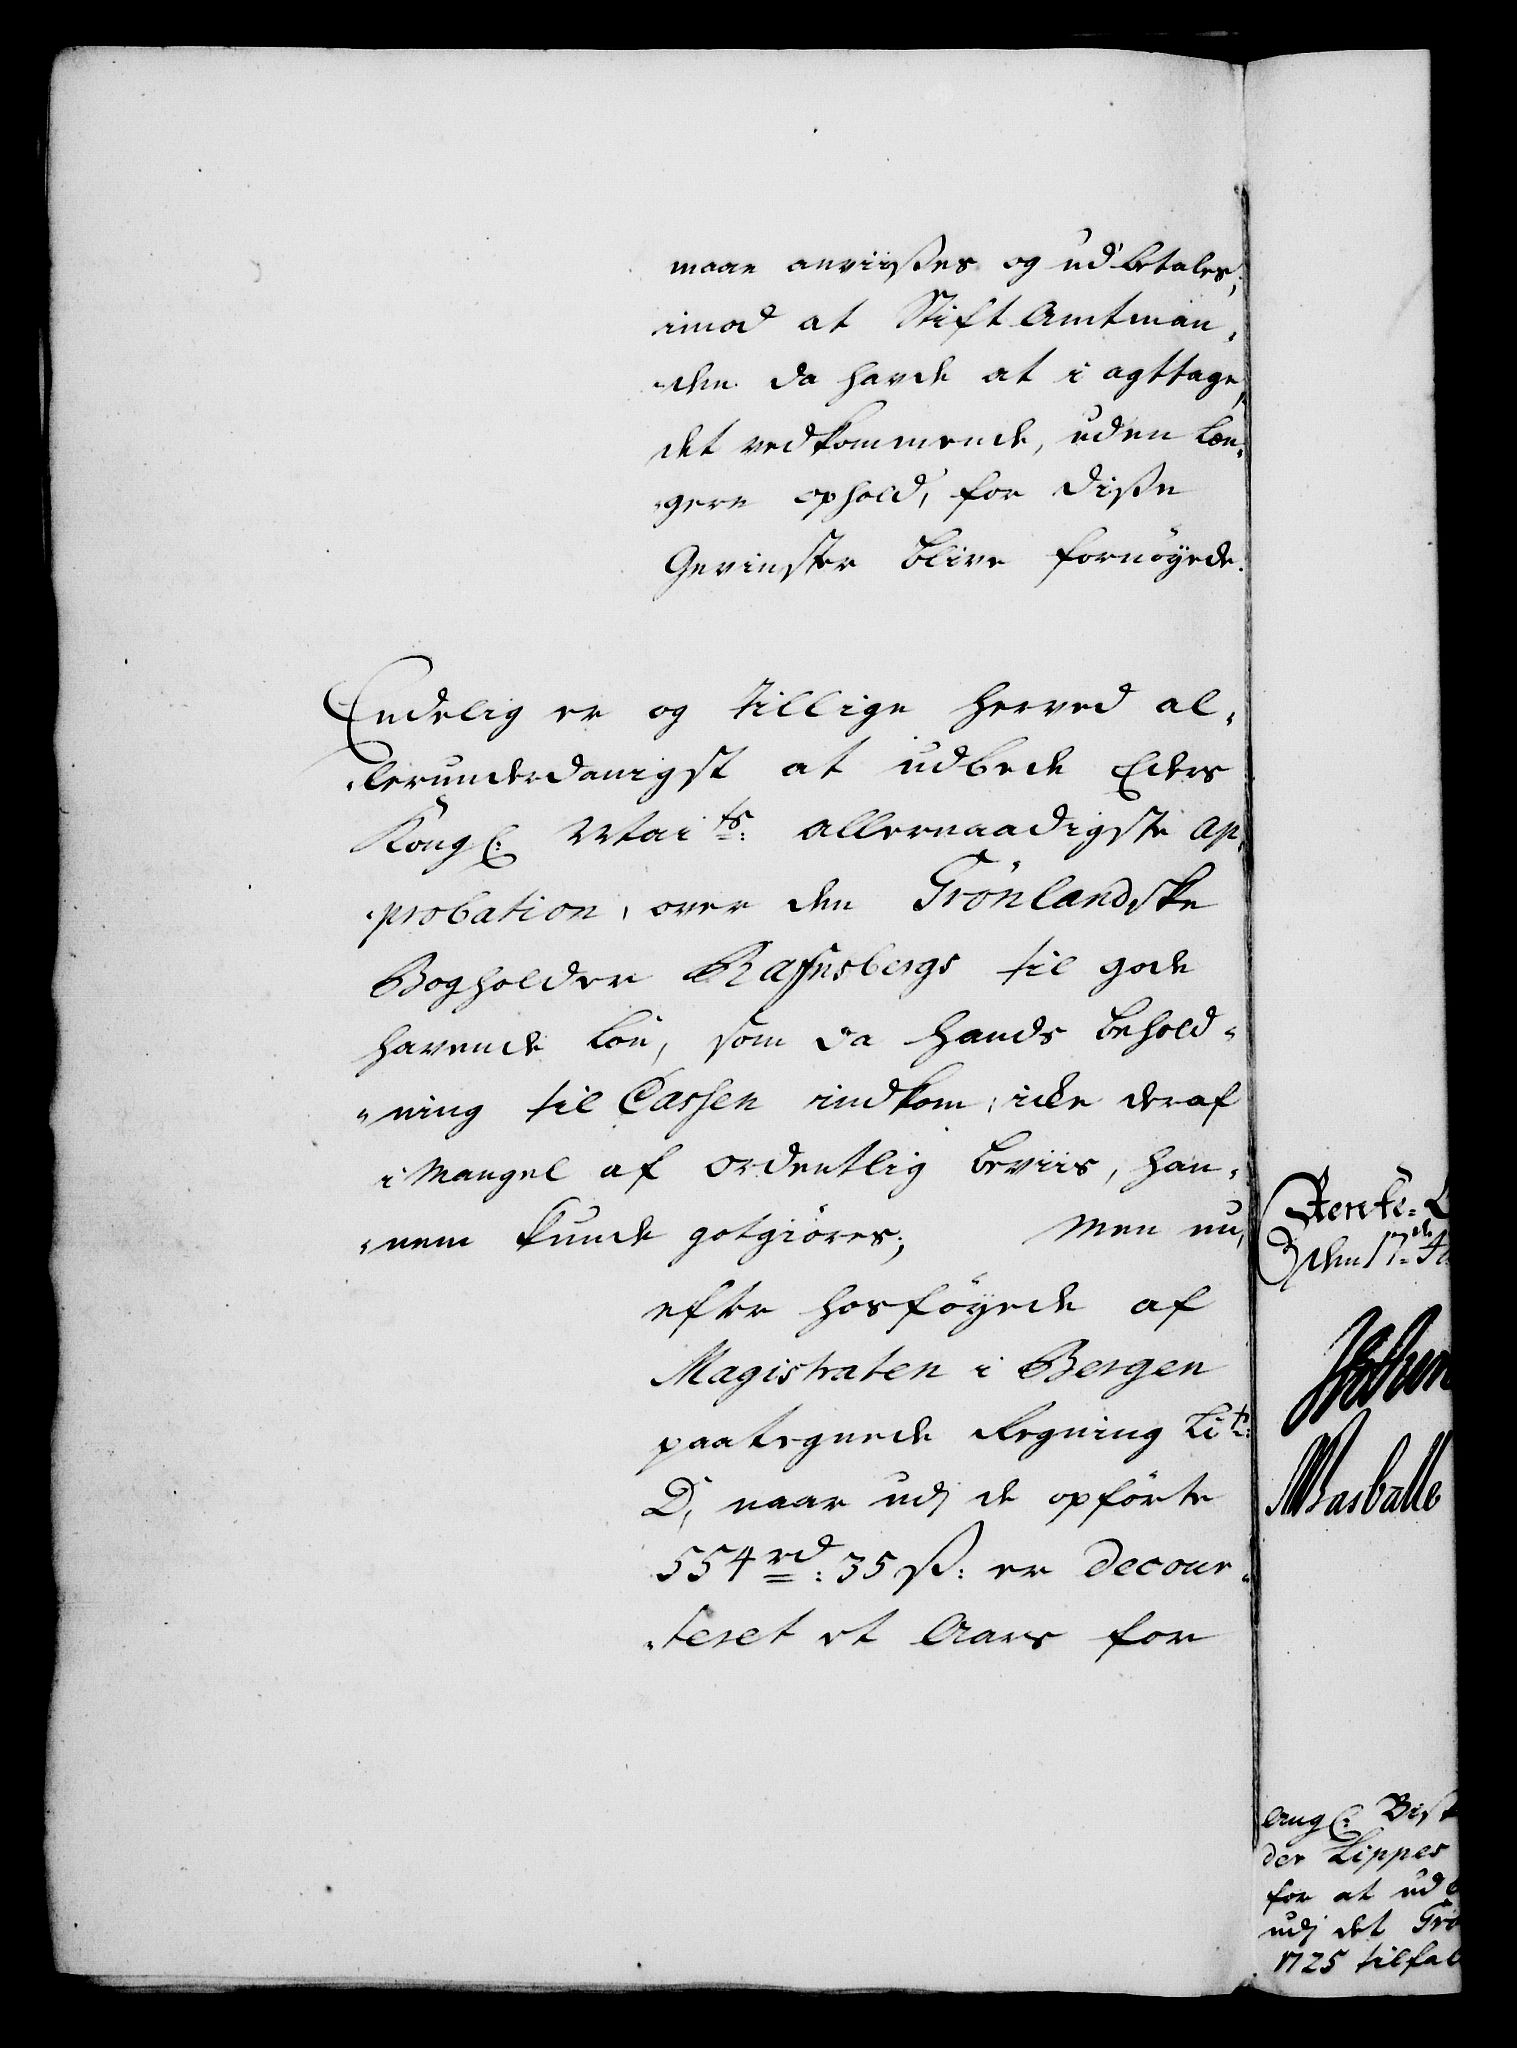 maae anviißes og udbetales,
imod at Stift Amtman„
„den da havde at i agttage,
det vedkommende, uden læn„
„gere ophold, for diße
Gevinster blive fornøyede.
Endelig er og tillige herved al„
„lerunderdanigst at udbede Eders
Kongl: Maits: allernaadigste Ap„
„probation, over den Grönlandske
Bogholder Raffnsbergs til gode
havende Lön, som da hands behold„
„ning til Cassen indkom, icke deraf
i Mangel af ordentlig beviis, han„
„nem kunde gotgiöres; Men nu,
efter hosföyede af
Magistraten i Bergen
paategnede Regning Litr:
D, naar udj de opförte
554 rd: 35 ß: er decour„
„teret et Aars for
Rente-C
den 17de
Basballe
Angl: Bisk
der Lippes
for at ud
udj det Grö
1725 tilfal